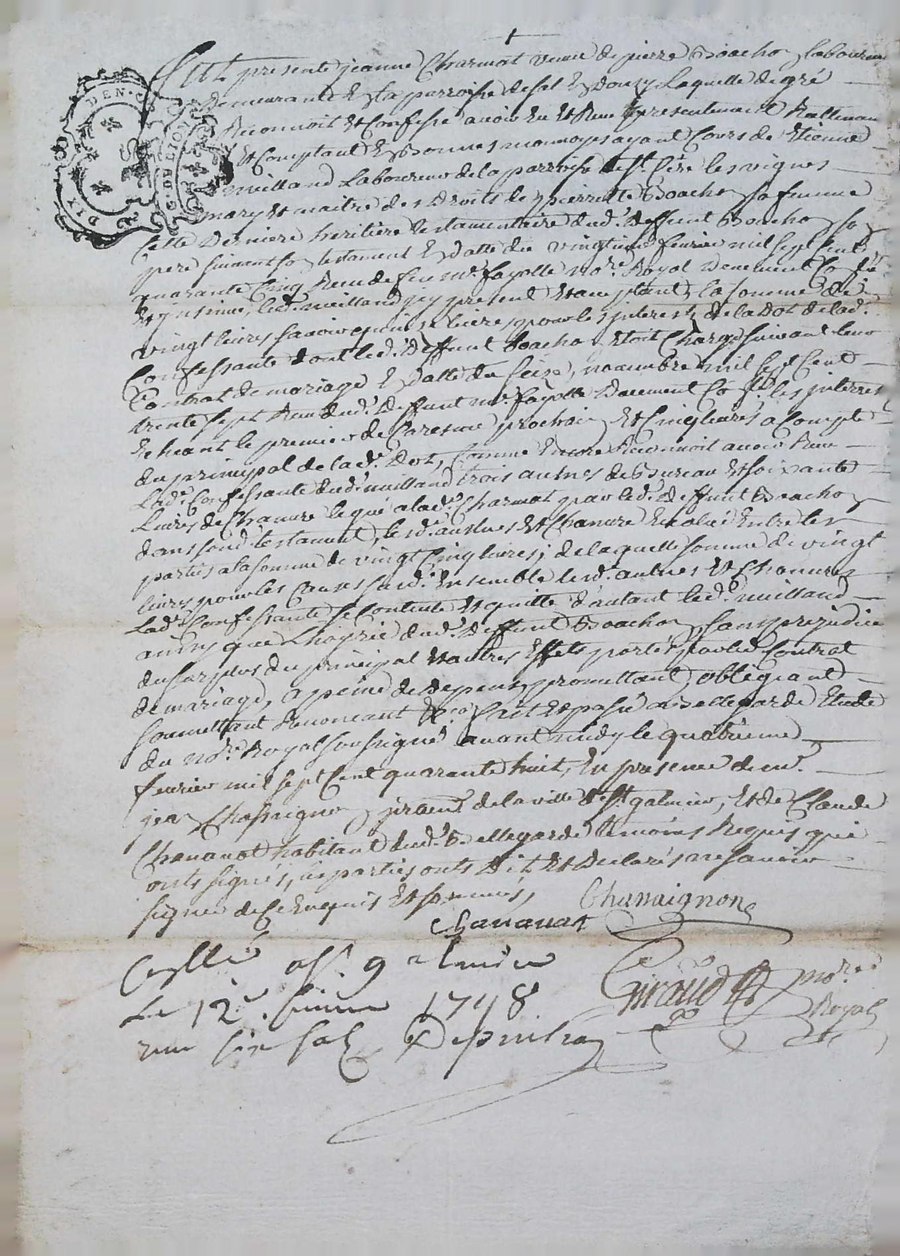 DIX DEN.
G. DE LION
C'est presenté jeanne Charmat veuve de pierre Boacho laboureur
demeurante En la parroisse de st E Donzy Laquelle de gré
Reconnoit Et Confesse avoir Eu Et Reçu presentement Reellement
Et Comptant En Bonnes monnoyes ayant Cours de Etienne
meilland Laboureur de la parroisse st Cire les vignes
mary Et maitre des Droits de pierrette Boacho sa femme
Cette Derniere heritiere testamentaire dud. deffunt Boacho so
pere suivant so testament En datte du vingt un fevrier mil sept Cent
quarante Cinq Reçu de feu me. fayolle nore. Royal Deuement Co
Et Insinué, led. meilland jcy present Et acceptant, la somme de
vingt livres savoir quinze livres pour les jnterets de la Dot de lad.
Confessante dont led. deffunt Boacho Etoit Chargé suivant leur
Contrat de mariage En datte du seize novembre mil sept Cent
trente sept Reçu dud. deffunt me. fayolle Deuement Co les jnterets
Echeant le premier de Caresme prochain Et Cinq livres a Compte
du principal de lad. Dot, Comme Encore Reconnoit avoir Reçu
Lad. Confessante dud. meilland trois aulnes de Bureau Et soixante
Livres de Chanvre legué a lad. Charmat par led. deffunt Boacho
dans sond. testament, lesd. aulnes Et Chanvre Evalué Entre les
parties a la somme de vingt Cinq livres; de laquelle somme de vingt
livres pour les Causes susd. Ensemble lesd. aulnes Et Chanvre
Lad. Confessante se Contente Et quitte d'autant led. meilland
ainsy que L'hoyrie dud. deffunt Boacho sans prejudice
du surplus du principal Et autres Effets portés par led. Contrat
de mariage, a peine de depens, promettant, obligeant
soumettant Renoncant &ca. fait Et passé a Bellegarde Etude
du nore. Royal soussigné avant midy le quatrieme
fevrier mil sept Cent quarante huit, En presence de me.
jea Chassaigno, de la ville de st. galmier, Et de Claude
Chananat habitant dud. Bellegarde temoins Requis qui
onts signés, les parties onts Dit Et Declarés ne savoir
signer de Ce Enquis Et sommés,
Chassaignon
Chananat
Cyllé a st. galmier
Le 12e. fevrier 1748
reçu six sols
Giraud nore. Royal